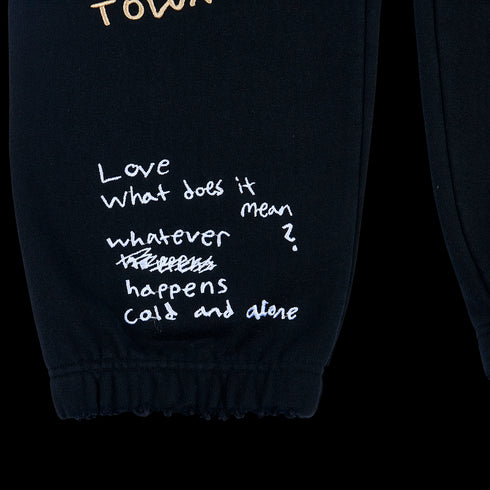 TOWN
Love
what does it
mean
whatever ?
happens
cold and alone